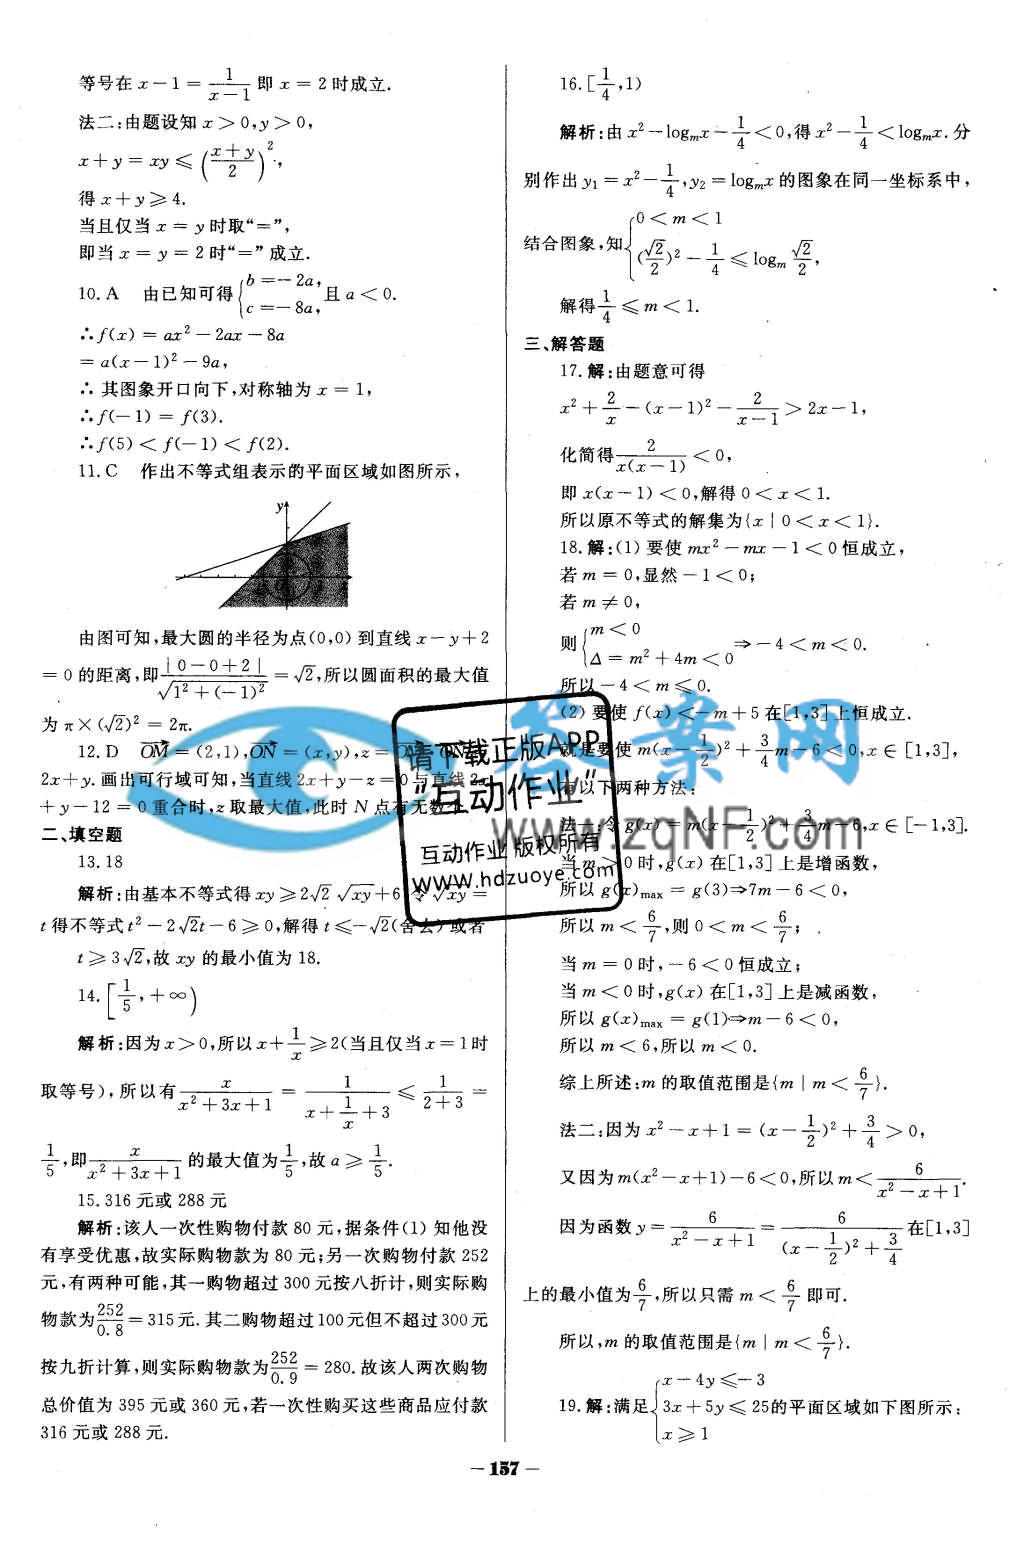 等号在 x−1 = 1/(x−1) 即 x = 2 时成立.
法二:由题设知 x > 0,y > 0,
x + y = xy ≤ ((x+y)/2)²,
得 x + y ≥ 4.
当且仅当 x = y 时取“=”,
即当 x = y = 2 时“=”成立.
10. A 由已知可得 {b = −2a, c = −8a, 且 a < 0.
∴ f(x) = ax² − 2ax − 8a
= a(x − 1)² − 9a,
∴ 其图象开口向下,对称轴为 x = 1,
∴ f(−1) = f(3).
∴ f(5) < f(−1) < f(2).
11. C 作出不等式组表示的平面区域如图所示,
y
由图可知,最大圆的半径为点(0,0) 到直线 x − y + 2
= 0 的距离,即 |0−0+2|/√(1²+(−1)²) = √2,所以圆面积的最大值
为 π×(√2)² = 2π.
12. D OM = (2,1),ON = (x,y),z = OM · ON =
2x + y. 画出可行域可知,当直线 2x + y − z = 0 与直线 2x
+ y − 12 = 0 重合时,z 取最大值,此时 N 点有无数个.
二、填空题
13. 18
解析:由基本不等式得 xy ≥ 2√2 √xy + 6,令 √xy =
t 得不等式 t² − 2√2t − 6 ≥ 0,解得 t ≤ −√2(舍去) 或者
t ≥ 3√2,故 xy 的最小值为 18.
14. [1/5, +∞)
解析:因为 x>0,所以 x + 1/x ≥ 2(当且仅当 x = 1 时
取等号),所以有 x/(x²+3x+1) = 1/(x+1/x+3) ≤ 1/(2+3) =
1/5,即 x/(x²+3x+1) 的最大值为 1/5,故 a ≥ 1/5.
15. 316 元或 288 元
解析:该人一次性购物付款 80 元,据条件(1) 知他没
有享受优惠,故实际购物款为 80 元;另一次购物付款 252
元,有两种可能,其一购物超过 300 元按八折计,则实际购
物款为 252/0.8 = 315 元. 其二购物超过 100 元但不超过 300 元
按九折计算,则实际购物款为 252/0.9 = 280. 故该人两次购物
总价值为 395 元或 360 元,若一次性购买这些商品应付款
316 元或 288 元.
16. [1/4, 1)
解析:由 x² − logₘx − 1/4 < 0,得 x² − 1/4 < logₘx. 分
别作出 y₁ = x² − 1/4, y₂ = logₘx 的图象在同一坐标系中,
结合图象,知 {0 < m < 1 (√2/2)² − 1/4 ≤ logₘ √2/2,
解得 1/4 ≤ m < 1.
三、解答题
17. 解:由题意可得
x² + 2/x − (x − 1)² − 2/(x−1) > 2x − 1,
化简得 2/(x(x−1)) < 0,
即 x(x − 1) < 0,解得 0 < x < 1.
所以原不等式的解集为{x | 0 < x < 1}.
18. 解:(1) 要使 mx² − mx − 1 < 0 恒成立,
若 m = 0,显然 −1 < 0;
若 m ≠ 0,
则 {m < 0 Δ = m² + 4m < 0 ⇒ −4 < m < 0.
所以 −4 < m ≤ 0.
(2) 要使 f(x) < −m + 5 在[1,3] 上恒成立.
就是要使 m(x − 1/2)² + 3/4 m − 6 < 0,x ∈ [1,3],
有以下两种方法:
法一:令 g(x) = m(x − 1/2)² + 3/4 m − 6,x ∈ [−1,3].
当 m > 0 时,g(x) 在[1,3] 上是增函数,
所以 g(x)max = g(3)⇒7m − 6 < 0,
所以 m < 6/7,则 0 < m < 6/7;
当 m = 0 时,−6 < 0 恒成立;
当 m < 0 时,g(x) 在[1,3] 上是减函数,
所以 g(x)max = g(1)⇒m − 6 < 0,
所以 m < 6,所以 m < 0.
综上所述:m 的取值范围是{m | m < 6/7}.
法二:因为 x² − x + 1 = (x − 1/2)² + 3/4 > 0,
又因为 m(x² − x + 1) − 6 < 0,所以 m < 6/(x²−x+1).
因为函数 y = 6/(x²−x+1) = 6/((x−1/2)²+3/4) 在[1,3]
上的最小值为 6/7,所以只需 m < 6/7 即可.
所以,m 的取值范围是{m | m < 6/7}.
19. 解:满足 {x − 4y ≤ −3 3x + 5y ≤ 25 x ≥ 1 的平面区域如下图所示:
— 157 —
答案网
www.zqNF.com
请下载正版APP
“互动作业”
互动作业 版权所有
www.hdzuoye.com